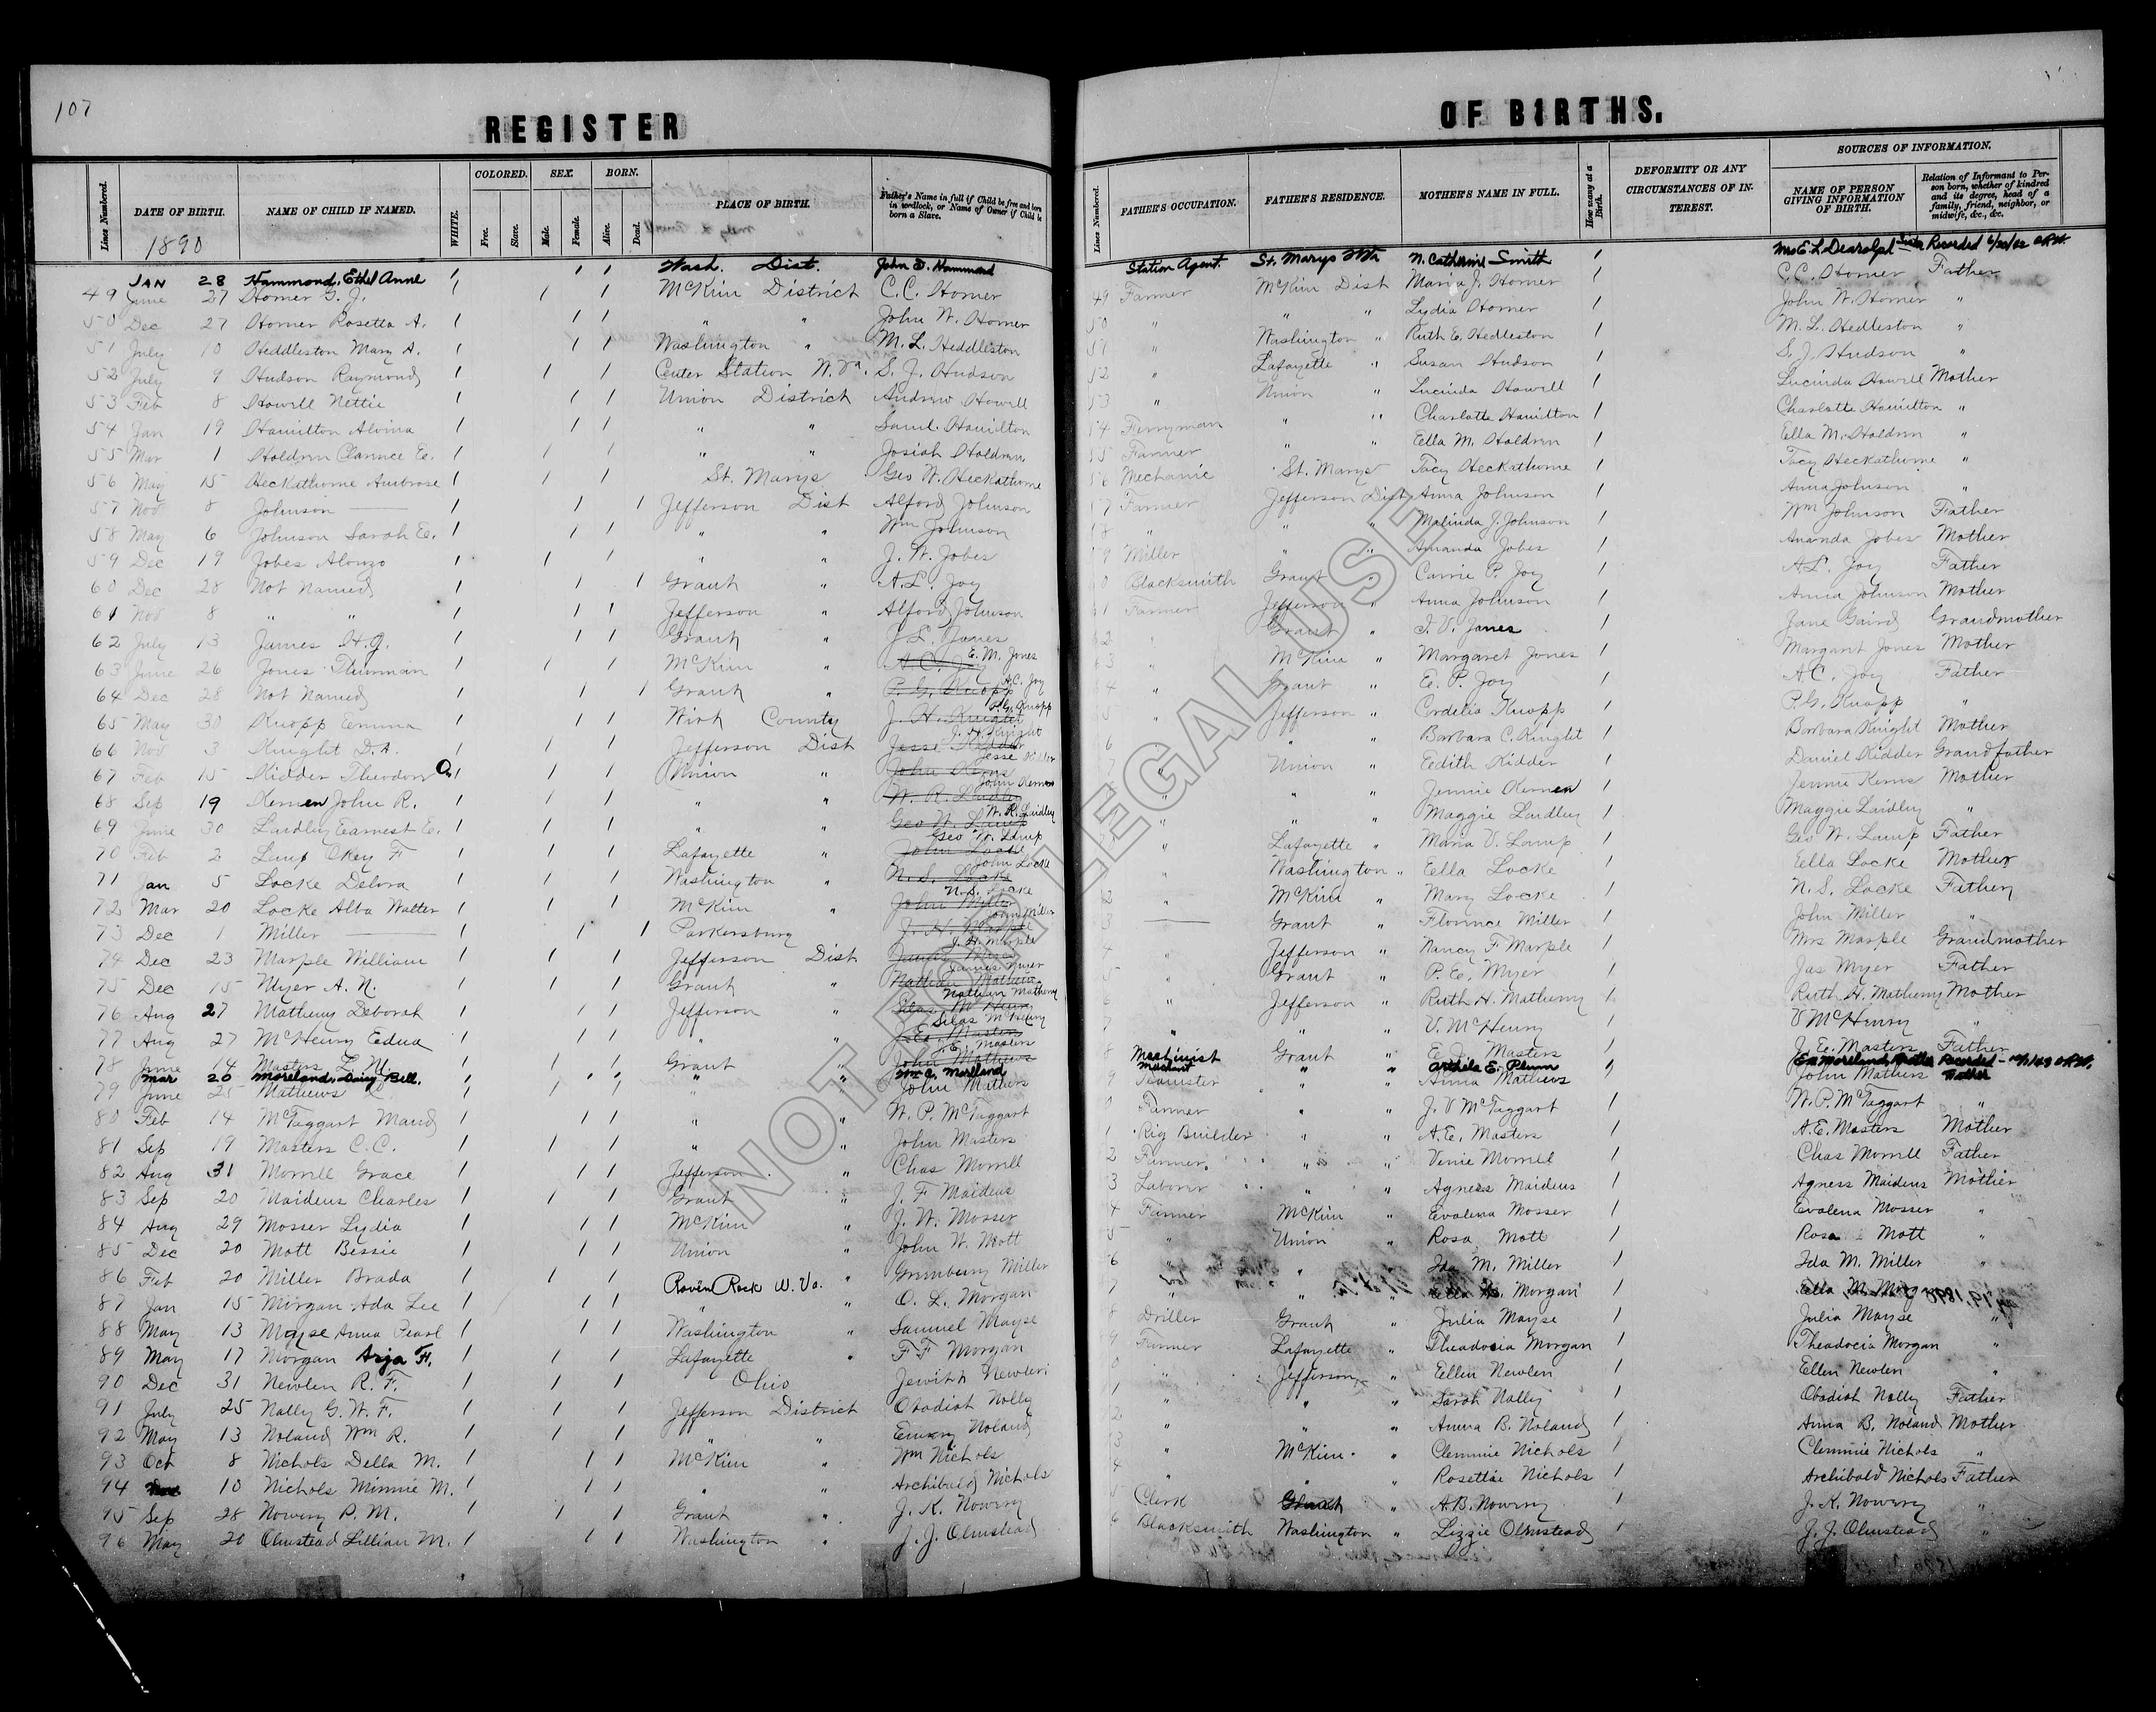 107
REGISTER OF BIRTHS.
Lines Numbered. DATE OF BIRTH. NAME OF CHILD IF NAMED. WHITE. COLORED. Free. Slave. SEX. Male. Female. BORN. Alive. Dead. PLACE OF BIRTH. Father's Name in full if Child be free and born in wedlock, or Name of Owner if Child be born a Slave. Lines Numbered. FATHER'S OCCUPATION. FATHER'S RESIDENCE. MOTHER'S NAME IN FULL. How many at a Birth. DEFORMITY OR ANY CIRCUMSTANCES OF INTEREST. SOURCES OF INFORMATION. NAME OF PERSON GIVING INFORMATION OF BIRTH. Relation of Informant to Person born, whether of kindred and its degree, head of a family, friend, neighbor, or midwife, &c., &c.
1890
JAN 28 Hammond, Ethel Anne 1 1 1 Wash. Dist. John D. Hammond Station Agent. St. Marys N. Catherine Smith 1 Mrs E. L. Dearolph Sister Recorded
49 June 27 Horner G. J. 1 1 1 McKim District C. C. Horner 49 Farmer McKim Dist Maria J. Horner 1 C. C. Horner Father
50 Dec 27 Horner Rosetta A. 1 1 1 " " John W. Horner 50 " " " Lydia Horner 1 John W. Horner "
51 July 10 Heddleston Mary A. 1 1 1 Washington " M. L. Heddleston 51 " Washington " Ruth E. Hedleston 1 M. L. Hedleston "
52 July 9 Hudson Raymond 1 1 1 Center Station W. Va. S. J. Hudson 52 " Lafayette " Susan Hudson 1 S. J. Hudson "
53 Feb 8 Howell Nettie 1 1 1 Union District Andrew Howell 53 " Union " Lucinda Howell 1 Lucinda Howell Mother
54 Jan 19 Hamilton Alvina 1 1 1 " " Saml. Hamilton 54 Ferryman " " Charlotte Hamilton 1 Charlotte Hamilton "
55 Mar 1 Holdren Clarence E. 1 1 1 " " Josiah Holdren 55 Farmer " " Ella M. Holdren 1 Ella M. Holdren "
56 May 15 Heckathorne Ambrose 1 1 1 St. Marys Geo W. Heckathorne 56 Mechanic St. Marys Tacy Heckathorne 1 Tacy Heckathorne "
57 Nov 8 Johnson — 1 1 1 Jefferson Dist Alford Johnson 57 Farmer Jefferson Dist Anna Johnson 1 Anna Johnson "
58 May 6 Johnson Sarah E. 1 1 1 " " Wm Johnson 58 " " " Malinda J. Johnson 1 Wm Johnson Father
59 Dec 19 Jobes Alonzo 1 1 1 " " J. W. Jobes 59 Miller " " Amanda Jobes 1 Amanda Jobes Mother
60 Dec 28 Not Named 1 1 1 Grant " A. L. Joy 60 Blacksmith Grant " Carrie P. Joy 1 A. L. Joy Father
61 Nov 8 " " 1 1 1 Jefferson " Alford Johnson 61 Farmer Jefferson " Anna Johnson 1 Anna Johnson Mother
62 July 13 James H. G. 1 1 1 Grant " J. L. James 62 " Grant " I. V. James 1 Jane Gaird Grandmother
63 June 26 Jones Thurman 1 1 1 McKim " A. C. Joy E. M. Jones 63 " McKim " Margaret Jones 1 Margaret Jones Mother
64 Dec 28 Not Named 1 1 1 Grant " P. G. Knopp A. C. Joy 64 " Grant " E. P. Joy 1 A. C. Joy Father
65 May 30 Knopp Emma 1 1 1 Wirt County J. H. Knight P. G. Knopp 65 " Jefferson " Cordelia Knopp 1 P. G. Knopp "
66 Nov 3 Knight D. A. 1 1 1 Jefferson Dist Jesse Kidder J. H. Knight 66 " " " Barbara C. Knight 1 Barbara Knight Mother
67 Feb 15 Kidder Theodore O. 1 1 1 Union " John Kerns Jesse Kidder 67 " Union " Eedith Kidder 1 Daniel Kidder Grandfather
68 Sep 19 Kernen John R. 1 1 1 " " W. R. Laidley John Kernen " " " Jennie Kernen 1 Jennie Kerns Mother
69 June 30 Laidley Earnest E. 1 1 1 " " Geo W. Lamp W. R. Laidley " " " Maggie Laidley 1 Maggie Laidley "
70 Feb 2 Lamp Okey F 1 1 1 Lafayette " John Locke Geo W. Lamp " Lafayette " Maria V. Lamp 1 Geo W. Lamp Father
71 Jan 5 Locke Delora 1 1 1 Washington " N. S. Locke John Locke " Washington " Ella Locke 1 Ella Locke Mother
72 Mar 20 Locke Alba Walter 1 1 1 McKim " John Miller N. S. Locke 2 " McKim " Mary Locke 1 N. S. Locke Father
73 Dec 1 Miller — 1 1 1 Parkersburg J. H. Marple John Miller 3 — Grant " Florence Miller 1 John Miller "
74 Dec 23 Marple William 1 1 1 Jefferson Dist James Myer J. H. Marple 4 " Jefferson " Nancy F. Marple 1 Mrs Marple Grandmother
75 Dec 15 Myer A. N. 1 1 1 Grant " Nathan Matheny James Myer 5 " Grant " P. E. Myer 1 Jas Myer Father
76 Aug 27 Matheny Deborah 1 1 1 Jefferson " Silas McHenry Nathan Matheny 6 " Jefferson " Ruth H. Matheny 1 Ruth H. Matheny Mother
77 Aug 27 McHenry Edna 1 1 1 " " J. E. Masters Silas McHenry 7 " " " V. McHenry 1 V McHenry "
78 June 14 Masters L. M. 1 1 1 Grant " John Mathews J. E. Masters 8 Machinist Grant " E. J. Masters 1 J. E. Masters Father
Mar 20 Moreland, Daisy Bell. 1 1 1 " " Wm C. Moreland Merchant " " Arthela E. Plumm 1 Recorded
79 June 25 Mathews 1 1 1 " " John Mathers 9 Teamster " " Anna Mathews 1 John Mathers Father
80 Feb 14 McTaggart Maud 1 1 1 " " W. P. McTaggart 0 Farmer " " J. V McTaggart 1 W. P. McTaggart "
81 Sep 19 Masters C. C. 1 1 1 " " John Masters 1 Rig Builder " " A. E. Masters 1 A. E. Masters Mother
82 Aug 31 Morrell Grace 1 1 1 Jefferson " Chas Morrell 2 Farmer " " Venie Morrell 1 Chas Morrell Father
83 Sep 20 Maidens Charles 1 1 1 Grant " J. F Maidens 3 Laborer " " Agness Maidens 1 Agness Maidens Mother
84 Aug 29 Mosser Lydia 1 1 1 McKim " J. W. Mosser 4 Farmer McKim " Evalena Mosser 1 Evalena Mosser "
85 Dec 20 Mott Bessie 1 1 1 Union " John W. Mott 5 " Union " Rosa Mott 1 Rosa Mott "
86 Feb 20 Miller Brada 1 1 1 Raven Rock W. Va. " Miller 6 " " Ida M. Miller 1 Ida M. Miller "
87 Jan 15 Morgan Ada Lee 1 1 1 " " O. L. Morgan 7 " " " Ella Morgan 1 Ella
88 May 13 Mayse Anna Pearl 1 1 1 Washington " Samuel Mayse 8 Driller Grant " Julia Mayse 1 Julia Mayse "
89 May 17 Morgan Asja F. 1 1 1 Lafayette " F F Morgan 9 Farmer Lafayette " Theadocia Morgan 1 Theadocia Morgan "
90 Dec 31 Newlen R. F. 1 1 1 Ohio Newlen 0 " Jefferson " Ellen Newlen 1 Ellen Newlen "
91 July 25 Nally G. W. F. 1 1 1 Jefferson District Obadiah Nally 1 " " " Sarah Nally 1 Obadiah Nally Father
92 May 13 Noland Wm R. 1 1 1 " " Emery Noland 2 " " " Anna B. Noland 1 Anna B. Noland Mother
93 Oct 8 Nichols Della M. 1 1 1 McKim " Wm Nichols 3 " McKim " Clemmie Nichols 1 Clemmie Nichols "
94 10 Nichols Minnie M. 1 1 1 " " Archibald Nichols 4 " " " Rosettie Nichols 1 Archibald Nichols Father
95 Sep 28 Nowery P. M. 1 1 1 Grant " J. K. Nowery 5 Clerk Grant " A. B. Nowery 1 J. K. Nowery "
96 May 20 Olmstead Lillian M. 1 1 1 Washington " J. J. Olmstead 6 Blacksmith Washington " Lizzie Olmstead 1 J. J. Olmstead "
NOT FOR LEGAL USE